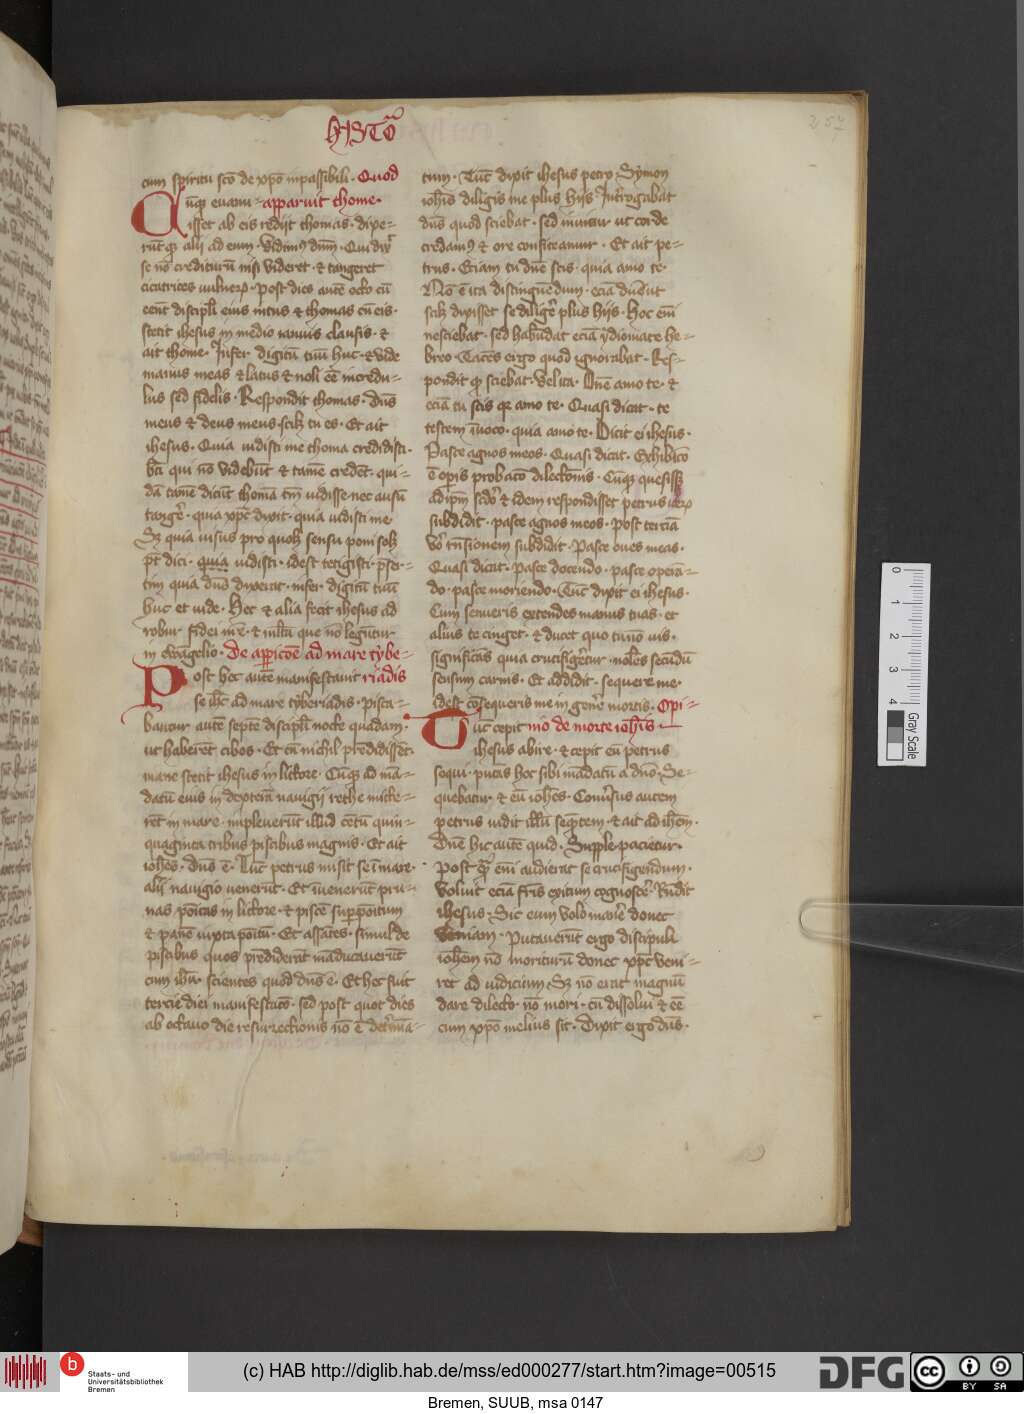 HISTO
257
cum spiritu sc̄o de xp̄o inpassibili · Quod
Cūq̨ euanu= apparuit thome·
isset ab eis redijt thomas· dixe-
rūt q̨ alij ad eum · Vidimꝰ dn̄m · Qui dix̄
se nō crediturū nisi videret · & tangeret
cicatrices vulneꝝ · Post dies autē octo cū
eēnt discipl̄i eius intus & thomas cū eis·
stetit ihesus in medio ianuis clausis · &
ait thome· Infer digitū tuū huc· & vide
manus meas & latus & noli eē incredu=
lus sed fidelis · Respondit thomas· Dn̄s
meus & deus meus scilꝫ tu es· Et ait
ihesus· Quia vidisti me thoma credidisti·
bt̄i qui nō viderūt & tamē credēt· qui-
dā tamē dicūt thomā tm̄ vidisse nec ausū
tangē· quia xp̄c dixit· quia vidisti me
Sꝫ quia visus pro quolꝫ sensu poni solꝫ
pt̄ dici· quia vidisti· idest tetigisti· p̄ser-
tim quia dn̄s dixerat· infer digitū tuū
huc et vide· Hec & alia fecit ihesus ad
robur fidei in r̄e· & ml̄ta que nō legūtur
in ewāgelio· De appīcōe ad mare tybe=
Post hec autē manifestauit riadis
se ih̄c ad mare tyberiadis· pisca-
bantur autē septē discipl̄i nocte quadam·
ut haberēt cibos· Et cū nichil prēdidissēt·
mane stetit ihesus in littore· Cūq̨ ad mā=
datū eius in dexterā nauigij rethe mitte=
rēt in mare· impleuerūt illud cētū quin=
quaginta tribus piscibus magnis· Et ait
ioh̄es· Dn̄s ē· Tūc petrus misit se ī mare·
alij nauigio venerūt· Et īuenerūt pru=
nas po̅itas in littore· & piscē supp̄oitum
& panē iuxta po̅itū· Et assātes· simul de
piscibus quos prēdiderāt māducauerūt
cum ih̄u· scientes quod dn̄s ē· Et hec fuit
tercie diei manifestacō· sed post quot dies
ab octauo die resurrectionis nō ē det̄minā=
tum· Tūc dixit ihesus petro Symon
ioh̄is diligis me plus hijs Int̄rogabat
dn̄s quod sciebat· sed inuitat ut corde
credamꝰ & ore confiteamur· Et ait pe-
trus· Eciam tu dn̄e scis· quia amo te·
Nō ē ita distinguēdum· eciā
scilꝫ dixisset se diligē plus hijs· Hoc em̄
nesciebat· sed habūdat eciā ydiomate he=
breo· Tacēs ergo quod ignorabat· Res=
pondit q̨ sciebat· velita· Dn̄e amo te· &
eciā tu scis qꝛ amo te· Quasi dicat· te
testem īuoco· quia amo te· Dicit ei ihesus·
Pasce agnos meos· Quasi dicat· Exhibicō
ē op̄is probacō dilectionis· Cūq̨ quesiss̄
ad ip̄m scdō & idem respondisset petrus iteꝝ
subdidit· pasce agnos meos· post terciā
v̄o int̄nsionem subdidit· Pasce oues meas·
Quasi dicat· Pasce docendo· pasce operā=
do· pasce moriendo· Tūc dixit ei ihesus·
Cum senueris extendes manus tuas· et
alius te cinget· & ducet quo tu nō uis·
significās quia crucifigēt̄ur nolēs secūdū
sensum carnis· Et addidit· sequere me·
idest cōsequeris me in geñe mortis· Opi=
Tūc cepit nīo de morte ioh̄is
ihesus abire· & cepit eū petrus
sequi· putās hoc sibi mādatū a dn̄o· Se-
quebatur & eū ioh̄es· Conuersus autem
petrus vidit illū seq̄ntem· & ait ad ih̄em·
Dn̄e hic autē quid· Supple pacietur·
Post q̄ꝫ em̄ audierat se crucifigendum·
Voluit eciā fr̄is exitum cognosc̄e· Rn̄dit
ihesus· Sic eum volo man̄e donec
veniam· Putauerūt ergo discipuli
ioh̄em nō moriturū donec xp̄c veni=
ret ad iudicium· Sꝫ nō erat magnū
dare dilecto nō mori· cū dissolui & eē
cum xp̄o melius sit· Dixit ergo dn̄s·
0 1 2 3 4
Gray Scale
b
Staats- und
Universitätsbibliothek
Bremen
(c) HAB http://diglib.hab.de/mss/ed000277/start.htm?image=00515
DFG
cc BY SA
Bremen, SUUB, msa 0147